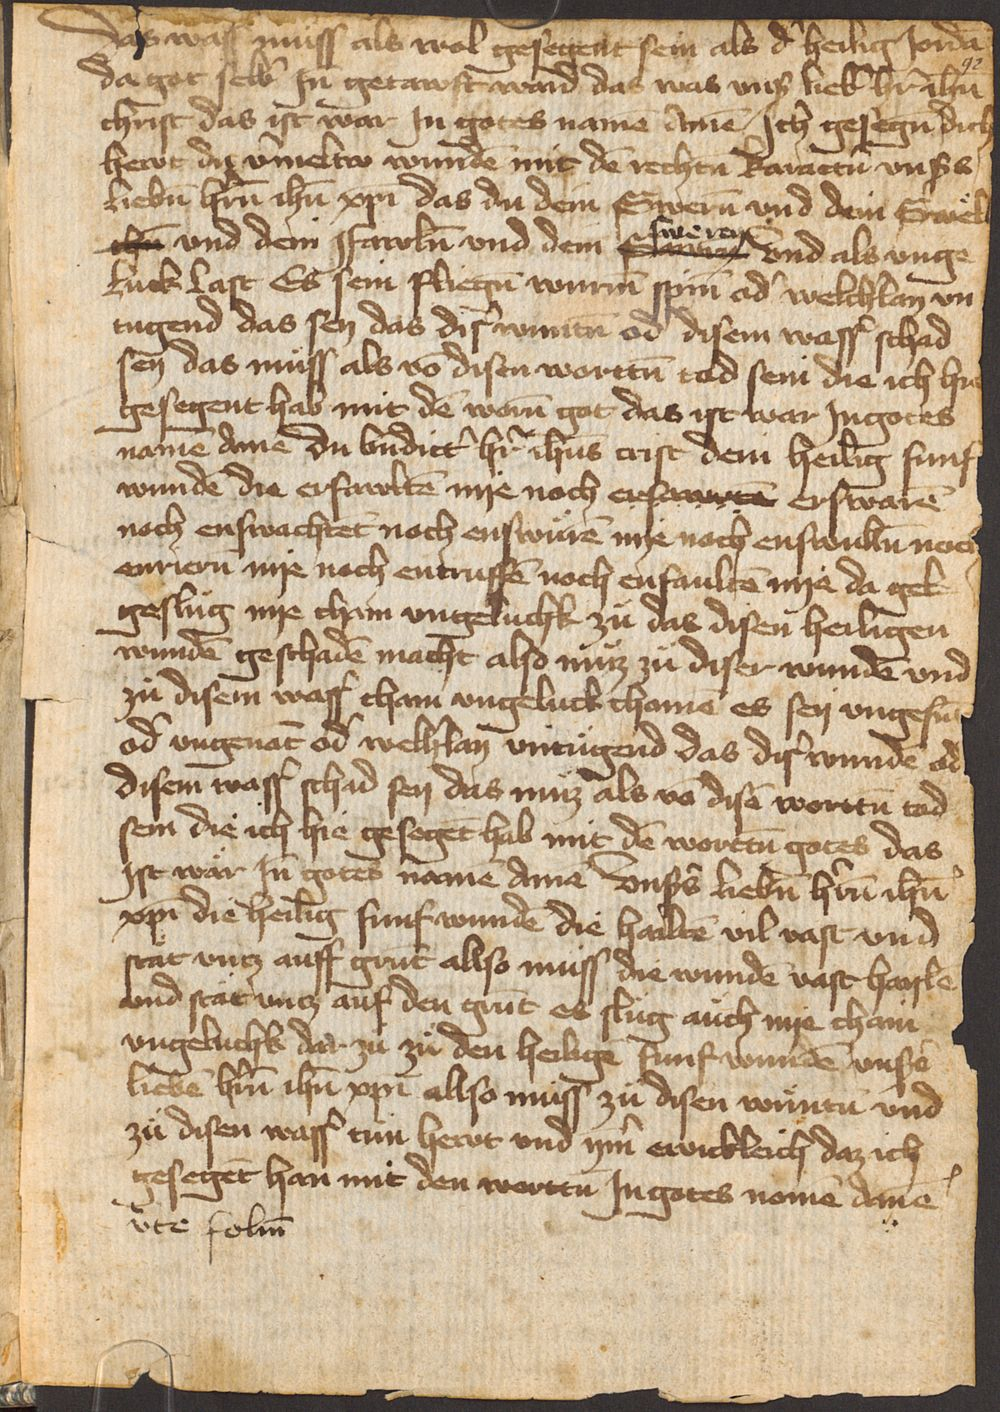 das wass muss als wol gesegent sein als d' heilig Jorda
92
da got selb' In getawft ward das was uns' lieb' hr' ihu
christ das ist war In gotes name Ame Ich gesegn dich
hewt du v'meltw wunde mit de rechtn karactn unss
liebn hrn ihu xpi das du dein Swern und dein
und dein fawln und dein sweren und als unge
luck last Es sein fliegn wurm spin od' welchlay un
tugend das sey das dis' wuntn od' disem wass' schad
sey das muss als vo disen worttn tod sein die ich hie
gesegent hab mit de worn got das ist war In gotes
name Ame du bndict' hr' ihus crist dein heilig funf
wunde die erfawlte nye noch erswarn
noch enswachtet noch enswure nye noch enswulln noch
enriern nye noch entruffe noch enfaulte nye da gel
geslug nye cham ungeluchk zu das disen heiligen
wunde geschade macht also muz zu diser wunde und
zu disem wass' cham ungeluck chome es sey ungesut
od' ungenat od' welhlay untugend das dis' wunde od'
disem wass' schad sey das muz als vo dise worttn tod
sein die ich hie geseget hab mit de worttn gotes das
Ist war In gotes name Ame Unss's liebn hrn ihu
xpi die heilig funf wunde die hailte vil vast und
stat untz auff grut allso muss die wunde vast hayle
und stat untz auf den grut es slug auch nye cham
ungeluchk dar zu zu den heilige funf wunde unss'
liebe hrn ihu xpi allso muss zu disen wuntn und
zu disen wass' tun hewt und ym' ewickleich daz ich
geseget han mit den worttn In gotes nome Ame
v'te folium